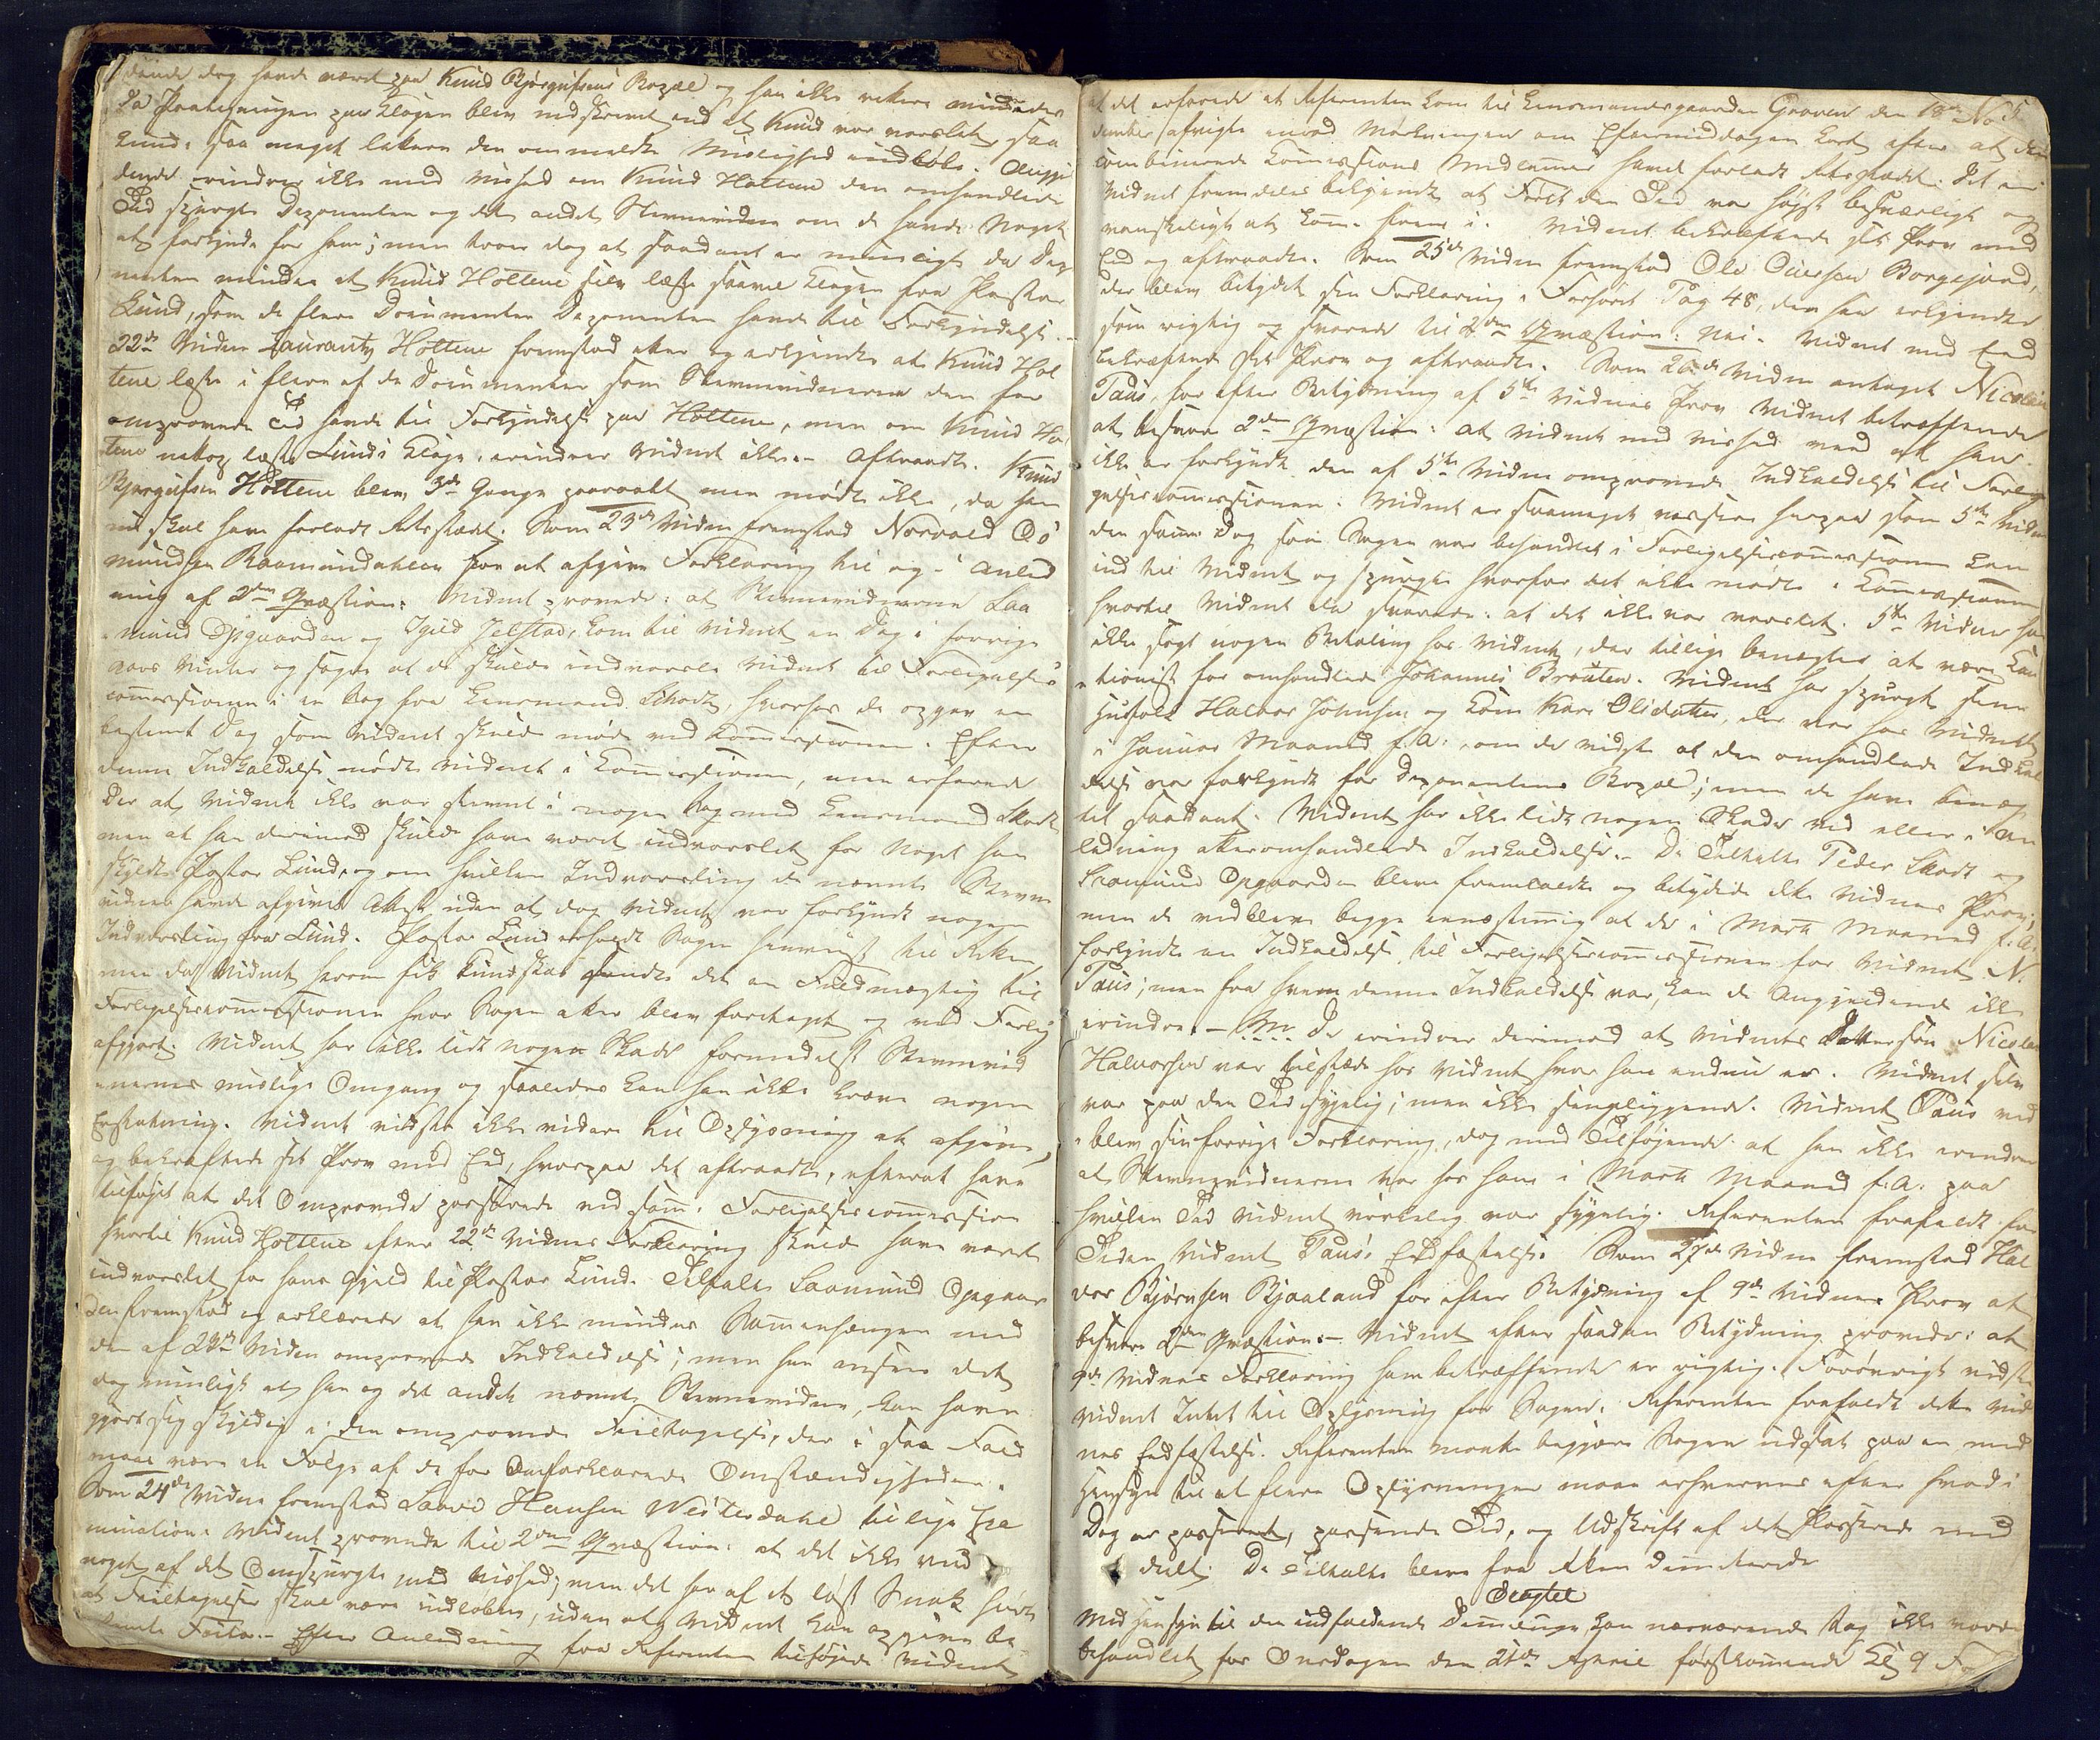 dende dog havde været paa Knud Bjørgufsens Bopæl og han ikke videre mindedes
da Paategningen paa Klagen blev nedskrevet end at Knud var varslet, saa
kunde saa meget lettere den ommeldte Mislighed indløbe. Angjel
dende erindrer ikke med Vished om Knud Holtene den omhandlede
Tid spurgte Deponenten og det andet Stevnevidne om de havde Noget
at forkynde for ham; men troer dog at saadant er rimeligt da Depo
nenten mindes at Knud Holtene selv læste saavel Klagen fra Pastor
Lund, som de flere Documenter Deponenten havde til Forkyndelse.
22de Vidne Laurantz Holtene fremstod atter og erkjendte at Knud Hol
tene læste i flere af de Documenter som Stevnevidnerne den før
omprovede Tid havde til Forkyndelse paa Holtene, men om Knud Hol
tene netop læste Lunds Klage, erindrer Vidnet ikke. - Aftraadt. Knud
Bjørgufsen Holtene blev 3de Gange paaraabt men mødte ikke, da han
nu skal have forladt Retsstædet. Som 23de Vidne fremstod Norvald Os
mundsen Raamundalen for at afgive Forklaring til og i Anled
ning af 2den Qvæstion. Vidnet provede: at Stevnevidnerne Saa
mund Opgaarden og Igild Jelstad, kom til Vidnet en Dag i forrige
Aars Vinter og sagde at de skulde indvarsle Vidnet til Forligelses
commissionen i en Sag fra Lensmand Skodt, hvorfor de opgav en
bestemt Dag som Vidnet skulde møde ved Commissionen. Efter
denne Indkaldelse mødte Vidnet i Commissionen, men erfarede
der at Vidnet ikke var stevnet i nogen Sag med Lensmand Skodt
men at han derimod skulde have været indvarslet for Noget han
skyldte Pastor Lund, og om hvilken Indvarsling de nævnte Stevne
vidner havde afgivet Attest uden at dog Vidnet var forkyndt nogen
Indvarsling fra Lund. Pastor Lund erholdt Sagen henviist til Retten
men da Vidnet herom fik Kundskab sendte det en Fuldmægtig til
Forligelsescommissionen hvor Sagen atter blev foretaget og ved Forlig
afgjort. Vidnet har ikke lidt nogen Skade formedelst Stevnevid
nernes mislige Omgang og saaledes kan han ikke kræve nogen
Erstatning. Vidnet vidste ikke videre til Oplysning at afgive,
og bekræftede sit Prov med Eed, hvorpaa det aftraadte, efterat have
tilføjet at det Omprovede passerede ved samme Forligelsescommission
hvortil Knud Holtene efter 22de Vidnes Forklaring skulde have været
indvarslet for hans Gjeld til Pastor Lund. Tiltalte Saamund Opgaar
den fremstod og erklærede at han ikke mindes Sammenhængen med
den af 23de Vidne omprovede Indkaldelse; men han anseer det
dog rimeligt at han og det andet nævnte Stevnevidne, kan have
gjort sig skyldig i den omprovede Feiltagelse, der i saa Fald
maae være en Følge af de før Omforklarede Omstændigheder.
Som 24de Vidne fremstod Saave Hansen Vestesdahl til lige Exa
mination. Vidnet provede til 2den Qvæstion: at det ikke veed
noget af det Omspurgte med Vished; men det har af et løst Snak hørt
at Feiltagelser skal være indløbne, uden at Vidnet kan opgive be
stemte Facta. - Efter Anledning fra Referenten tilføjede Vidnet
5
at det erfarede at Referenten kom til Lensmandsgaarden Graver den 18de No
vember afvigte imod Mørkningen om Eftermiddagen kort efter at den
combinerede Commissions Medlemmer havde forladt Retsstædet. Det er
Vidnet fremdeles bekjendt at Føret den Tid var høist besværligt og
vanskeligt at komme frem i. Vidnet bekræftede sit Prov med
Eed og aftraadte. Som 25de Vidne fremstod Ole Olsen Borgejord,
der blev betydet sin Forklaring i Forhøret Pag 48, den han erkjendte
som rigtig og svarede til 2den Qvæstion: Nei. Vidnet med Eed
bekræftede sit Prov og aftraadte. Som 26de Vidne antoges Nicolai
Paus, for efter Betydning af 5te Vidnes Prov Vidnet betræffende
at besvare 2den Qvæstion: at Vidnet med Vished veed at han
ikke er forkyndt den af 5te Vidne omprovede Indkaldelse til Forli
gelsescommissionen. Vidnet er saameget vissere herpaa som 5te Vidne
den samme Dag som Sagen var behandlet i Forligelsescommissionen kom
ind til Vidnet og spurgte hvorfor det ikke mødte i Commissionen
hvortil Vidnet da svarede: at det ikke var varslet. 5te Vidne har
ikke søgt nogen Betaling hos Vidnet, der tillige benægter at være Cau
tionist for omhandlede Johannes Braaten. Vidnet har spurgt sine
Huusfolk Halvor Johnsen og Kone Kari Olsdatter, der var hos Vidnet
i Januar Maaned f. A. om de vidste at den omhandlede Indkal
delse var forkyndt for Deponentens Bopæl; men de have benæg
tet saadant. Vidnet har ikke lidt nogen Skade ved eller i An
ledning afteromhandlede Indkaldelse. - De Tiltalte Peder Skodt og
Saamund Opgaarden bleve fremkaldte og betydede dette Vidnes Prov;
men de vedbleve begge eenstemmig at de i Marts Maaned f. A.
forkyndte en Indkaldelse til Forligelsescommissionen for Vidnet N.
Paus; men fra hvem denne Indkaldelse var, kan de Angjeldende ikke
erindre. - De erindrer derimod at Vidnets Dattersøn Nicolai
Halvorsen var tilstæde hos Vidnet hvor han endnu er. Vidnet selv
var paa den Tid sygelig; men ikke sengeliggende. Vidnet Paus ved
blev sin forrige Forklaring, dog med Tilføjende at han ikke erindrer
at Stevnevidnerne var hos ham i Marts Maaned f. A. paa
hvilken Tid Vidnet virkelig var sygelig. Referenten frafaldt for
Tiden Vidnet Paus's Eedfæstelse. Som 27de Vidne fremstod Hal
vor Bjørnsen Bjaaland for efter Betydning af 9de Vidnes Prov at
besvare 2den Qvæstion. - Vidnet efter saadan Betydning provede: at
9de Vidnes Forklaring ham betræffende er rigtig. Forøvrigt vidste
Vidnet Intet til Oplysning for Sagen. Referenten frafaldt dette Vid
nes Eedfæstelse. Referenten maatte begjære Sagen udsat paa en med
Hensyn til at flere Oplysninger maae erhverves efter hvad i
Dag er passeret, passende Tid, og Udskrift af det Passerede med
deelt. De Tiltalte bleve fra Retten dimitterede
Eragtet
Med Hensyn til den indfaldende kan nærværende Sag ikke vorde
behandlet før Onsdagen den 21de April førstkommende Kl. 9 F